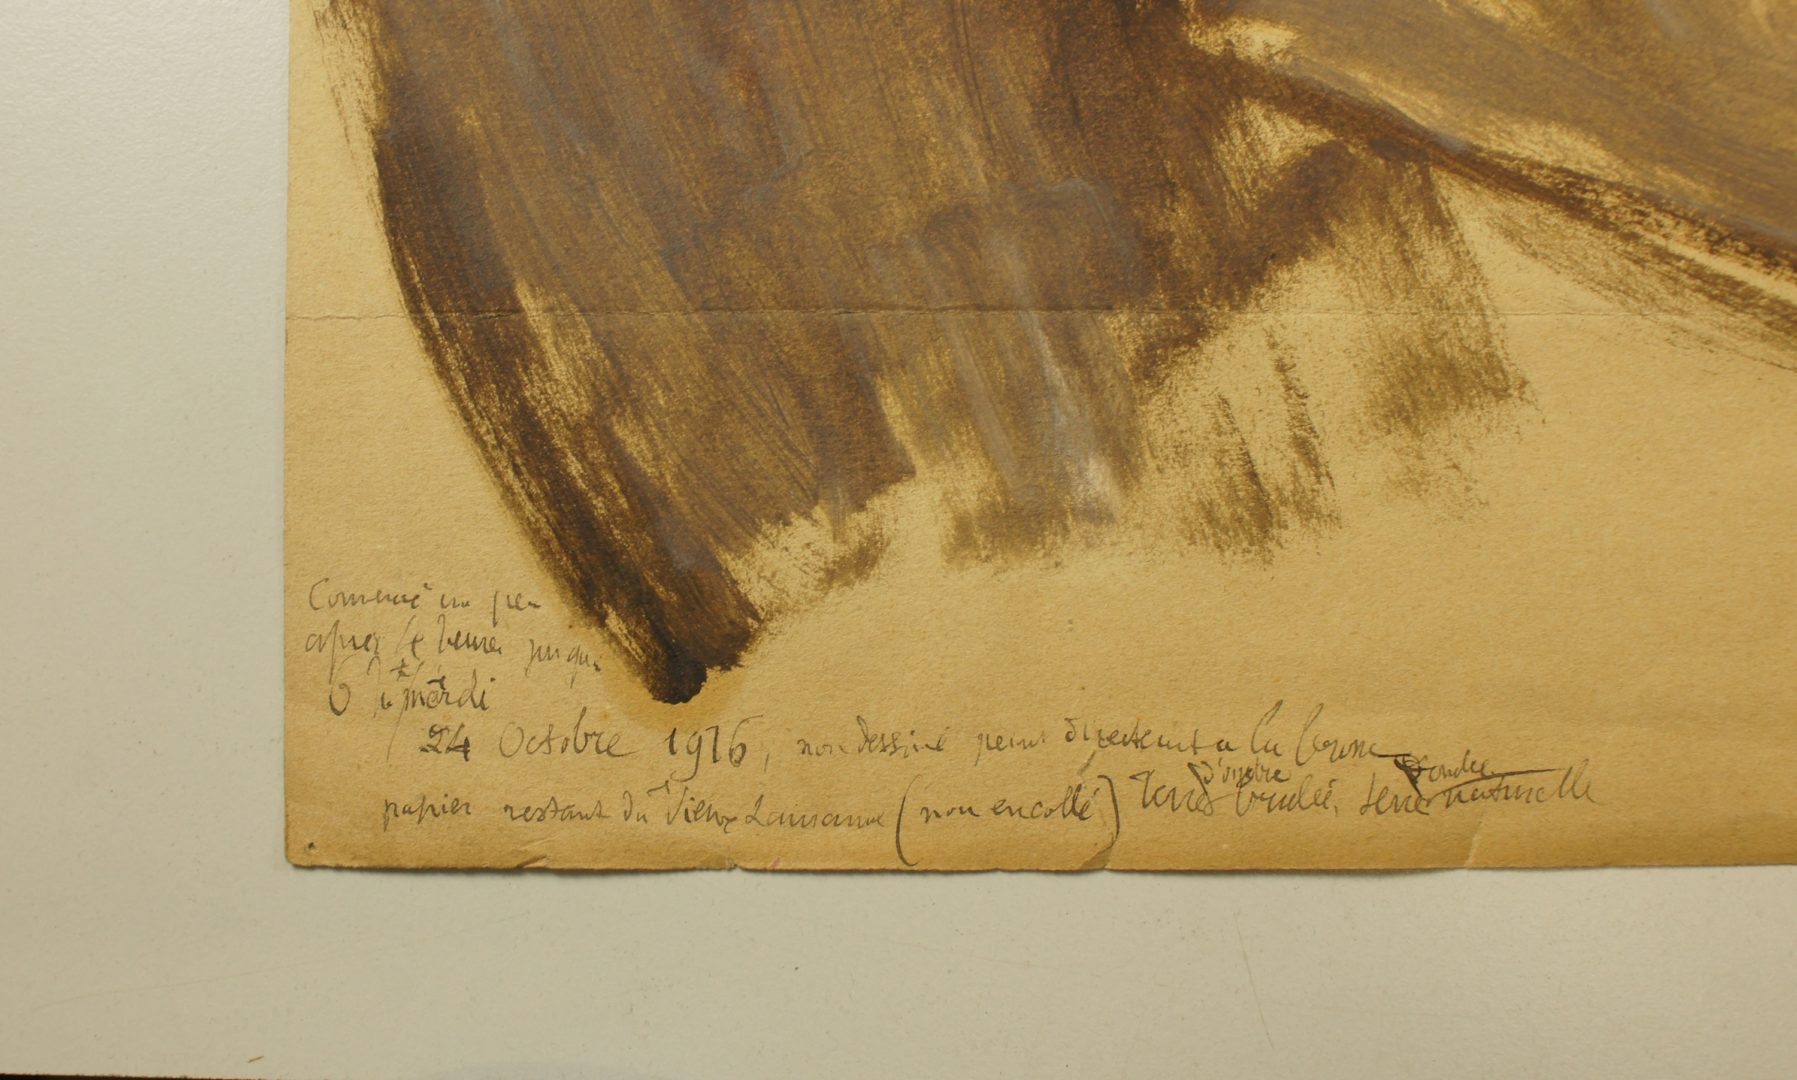 Commencé un peu
après 4 heures jusqu'à
6 h ½ mardi
24 Octobre 1916, non dessiné peint directement a la brosse
d'ombre
papier restant du Vieux Lausanne (non encollé) Terres brulée, terre naturelle